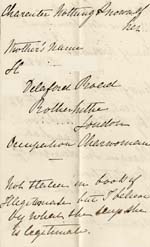 Character Nothing Known of
her
Mother's Name
St
Delaford Road
Rotherhithe
London
Occupation Charwoman
Not stated in book if
Illegitimate but I believe
by what she says she
is legitimate.